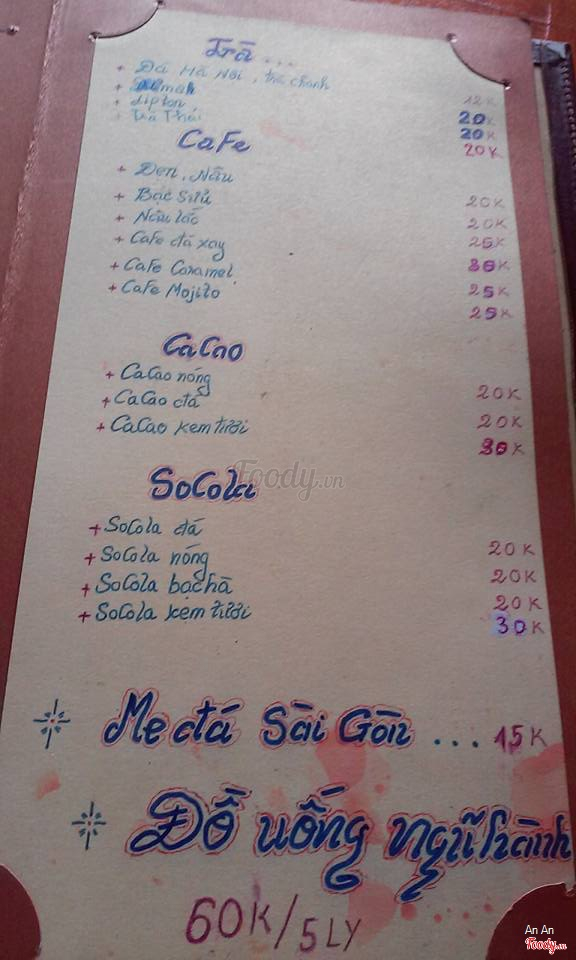 Trà ...
+ Đá Hà Nội, trà chanh 12K
+ Dilmah 20K
+ Lipton 20K
+ Trà Thái 20K
CaFe
+ Đen, Nâu 20K
+ Bạc Sửu 20K
+ Nâu lắc 25K
+ CaFe đá xay 30K
+ CaFe Caramel 25K
+ CaFe Mojito 25K
CaCao
+ CaCao nóng 20K
+ CaCao đá 20K
+ CaCao kem tươi 30K
SoCola
+ SoCola đá 20K
+ SoCola nóng 20K
+ SoCola bạc hà 20K
+ SoCola kem tươi 30K
Me đá Sài Gòn ... 15K
Đồ uống ngũ hành
60K/5LY
Foody.vn
An An
Foody.vn